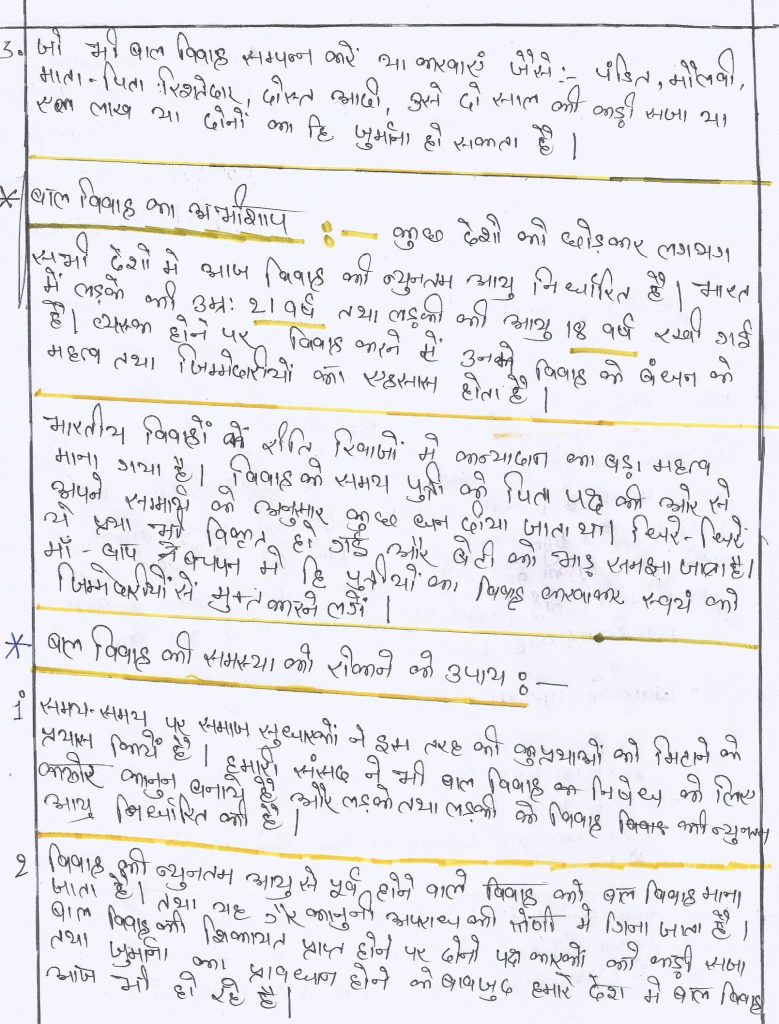 3. जो भी बाल विवाह सम्पन्न करें या करवाएं जैसे:- पंडित, मौलवी,
माता-पिता रिश्तेदार, दोस्त आदी, उसे दो साल की कड़ी सजा या
एक लाख या दोनों का हि जुर्माना हो सकता है।
* बाल विवाह का अभीशाप :— कुछ देशो को छोड़कर लगभग
सभी देशो मे आज विवाह की न्युनतम आयु निर्धारित है। भारत
में लड़के की उम्र: 21 वर्ष तथा लड़की की आयु 18 वर्ष रखी गई
है। व्यस्क होने पर विवाह करने में उनको विवाह के बंधन के
महत्व तथा जिम्मेदारीयों का एहसास होता है।
भारतीय विवाहों के रीति रिवाजों मे कन्यादान का बड़ा महत्व
माना गया है। विवाह के समय पुत्री को पिता पक्ष की और से
अपने सामर्थ्य के अनुसार कुछ धन दीया जाता था। धिरे-धिरें
ये प्रथा भी विकृत हो गई और बेटी को भाड़ समझा जाता है।
माँ-बाप बचपन मे हि पुत्रीयों का विवाह करवाकर स्वयं को
जिम्मेदारीयों सें मुक्त करने लगें।
* बाल विवाह की समस्या को रोकने के उपाय :—
1 समय-समय पर समाज सुधारकों ने इस तरह की कुप्रथाओं को मिटाने के
प्रयास कियें है। हमारी सांसद ने भी बाल विवाह के निषेध के लिए
कठोर कानुन बनाये है और लड़के तथा लड़की के विवाह की न्युनतम
आयु निर्धारित की है।
2 विवाह की न्युनतम आयु से पूर्व होने वाले विवाह को बाल विवाह माना
जाता है। तथा यह गैर कानुनी अपराध की श्रेणी मे गिना जाता है।
बाल विवाह की शिकायत प्राप्त होने पर दोनो पक्षकारकों को कड़ी सजा
तथा जुर्माना का प्रावधान होने के बावजुद हमारे देश मे बाल विवाह
आज भी हो रहे है।